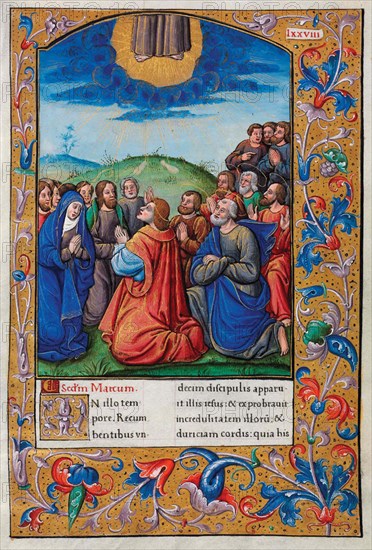 lxxviii
Secdm Marcum.
IN illo tem
pore. Recum
bentibus vn
decim discipulis apparu
it illis iesus: & exprobrauit
incredulitatem illorū: &
duriciam cordis: quia his